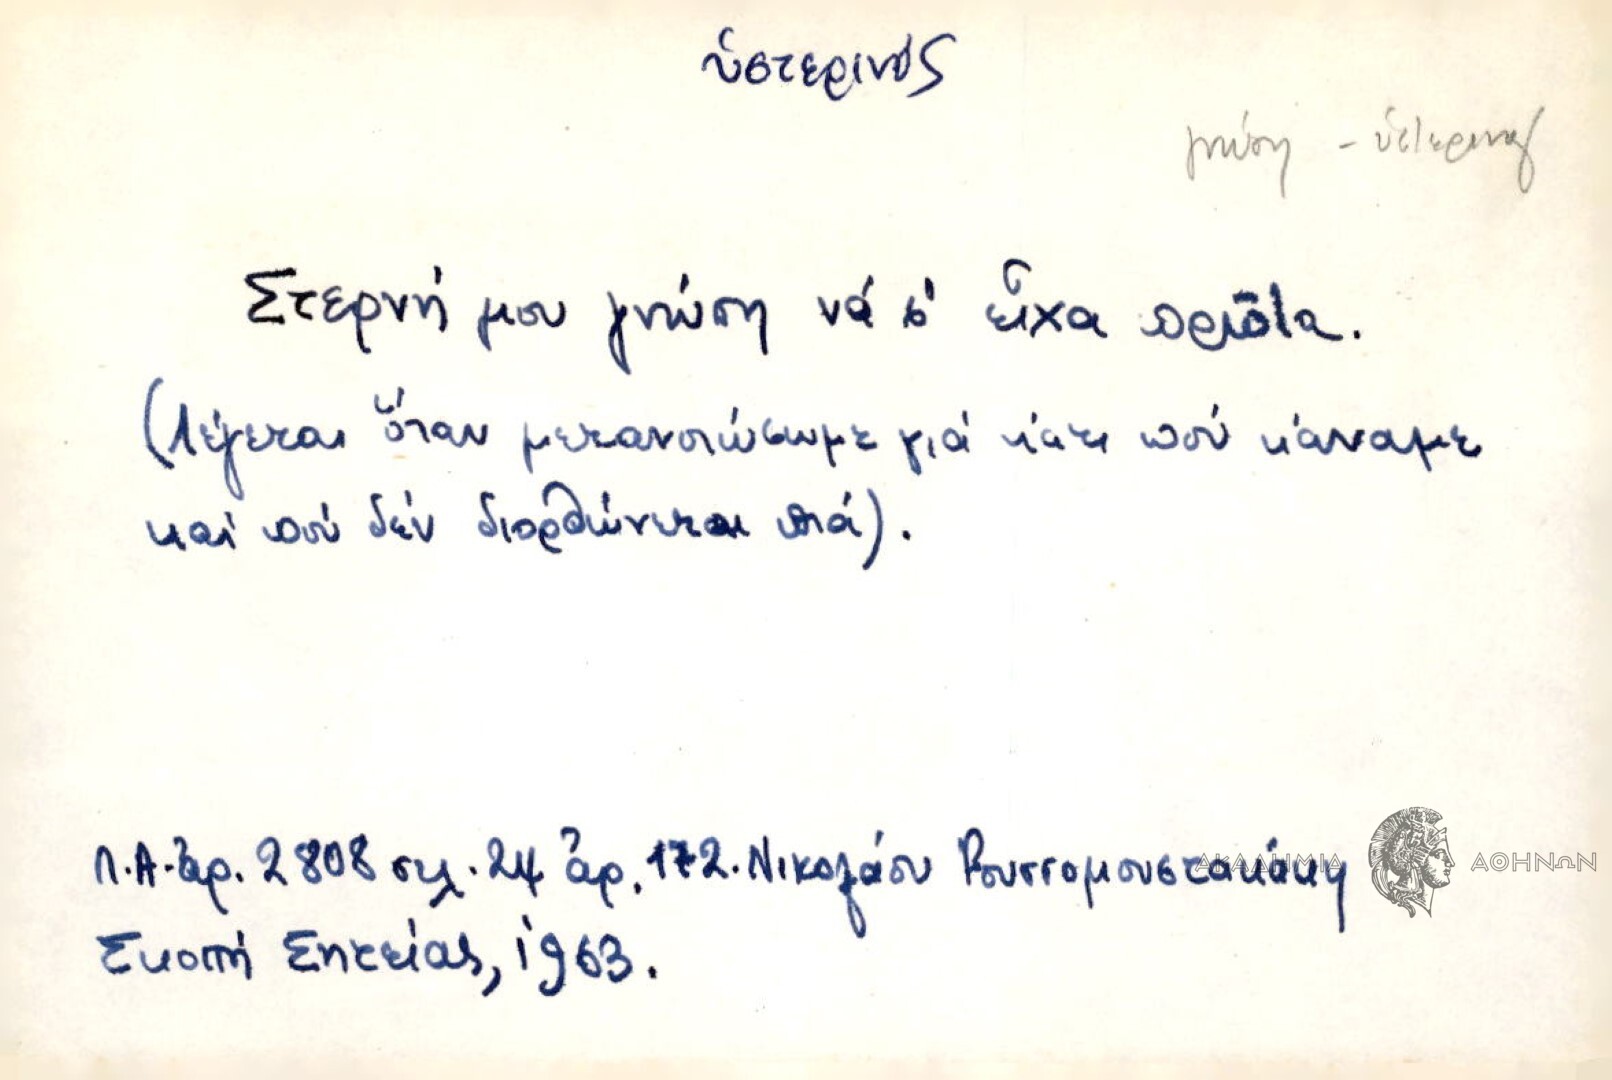 ὑστερινός
γνώση - ὑστερινός
Στερνή μου γνώση νά σ' εἶχα πρῶτα.
(Λέγεται ὅταν μετανοιώσωμε γιά κάτι πού κάναμε
καί πού δέν διορθώνεται πιά).
Λ.Α. ἀρ. 2808 σελ. 24 ἀρ. 172. Νικολάου Ρουσσομουστακάκη
Σκοπή Σητείας, 1963.
ΑΚΑΔΗΜΙΑ ΑΘΗΝΩΝ